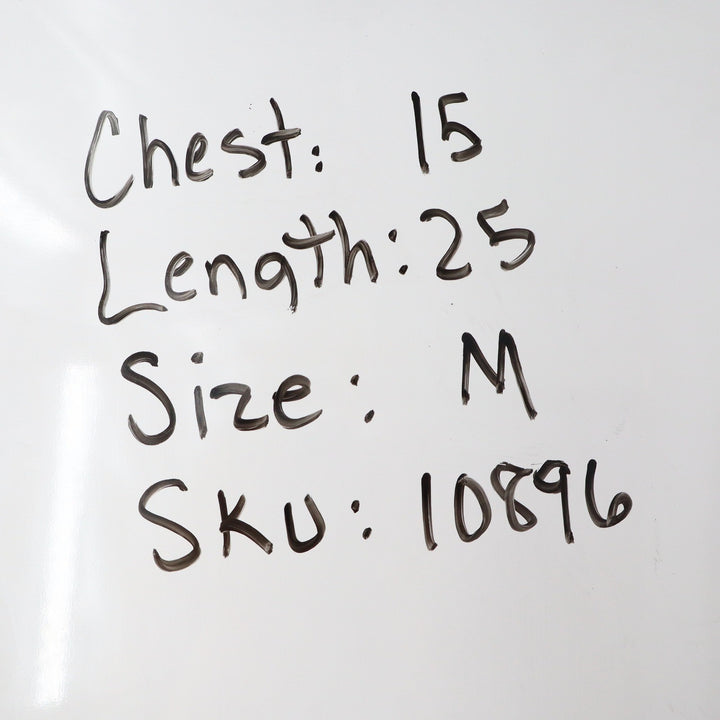 Chest: 15
Length: 25
Size: M
SKU: 10896